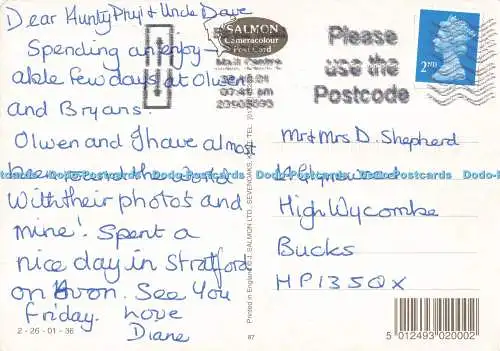 Dear Aunty Phyl & Uncle Dave
Spending an enjoy-
able few days at Olwen
and Bryans.
Olwen and I have almost
been round the world
with their photo's and
mine! Spent a
nice day in Stratford
on Avon. See you
Friday. Love
Diane
2-26-01-36
SALMON
Cameracolour
Post Card
Mail Centre
Please
use the
Postcode
2ND
Mr and Mrs D. Shepherd
High Wycombe
Bucks
HP13 5QX
Printed in England © J. SALMON LTD., SEVENOAKS, KENT. TEL.
87
5 012493 020002
Dodo-Postcards Dodo-Postcards Dodo-Postcards Dodo-Postcards Dodo-Postcards